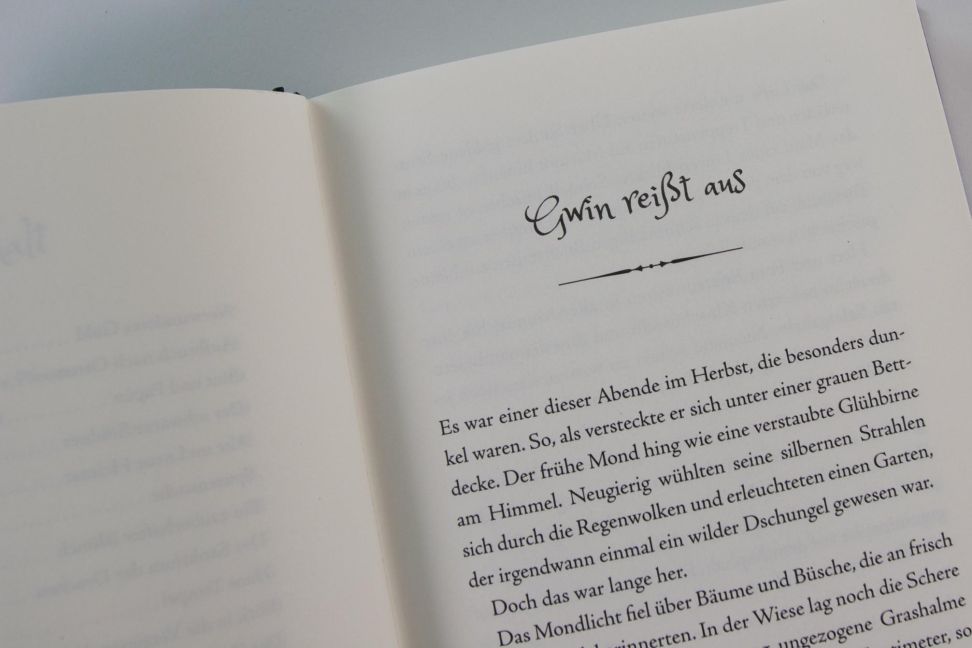 Gwin reißt aus
Es war einer dieser Abende im Herbst, die besonders dun-
kel waren. So, als versteckte er sich unter einer grauen Bett-
decke. Der frühe Mond hing wie eine verstaubte Glühbirne
am Himmel. Neugierig wühlten seine silbernen Strahlen
sich durch die Regenwolken und erleuchteten einen Garten,
der irgendwann einmal ein wilder Dschungel gewesen war.
Doch das war lange her.
Das Mondlicht fiel über Bäume und Büsche, die an frisch
In der Wiese lag noch die Schere
ungezogene Grashalme
so